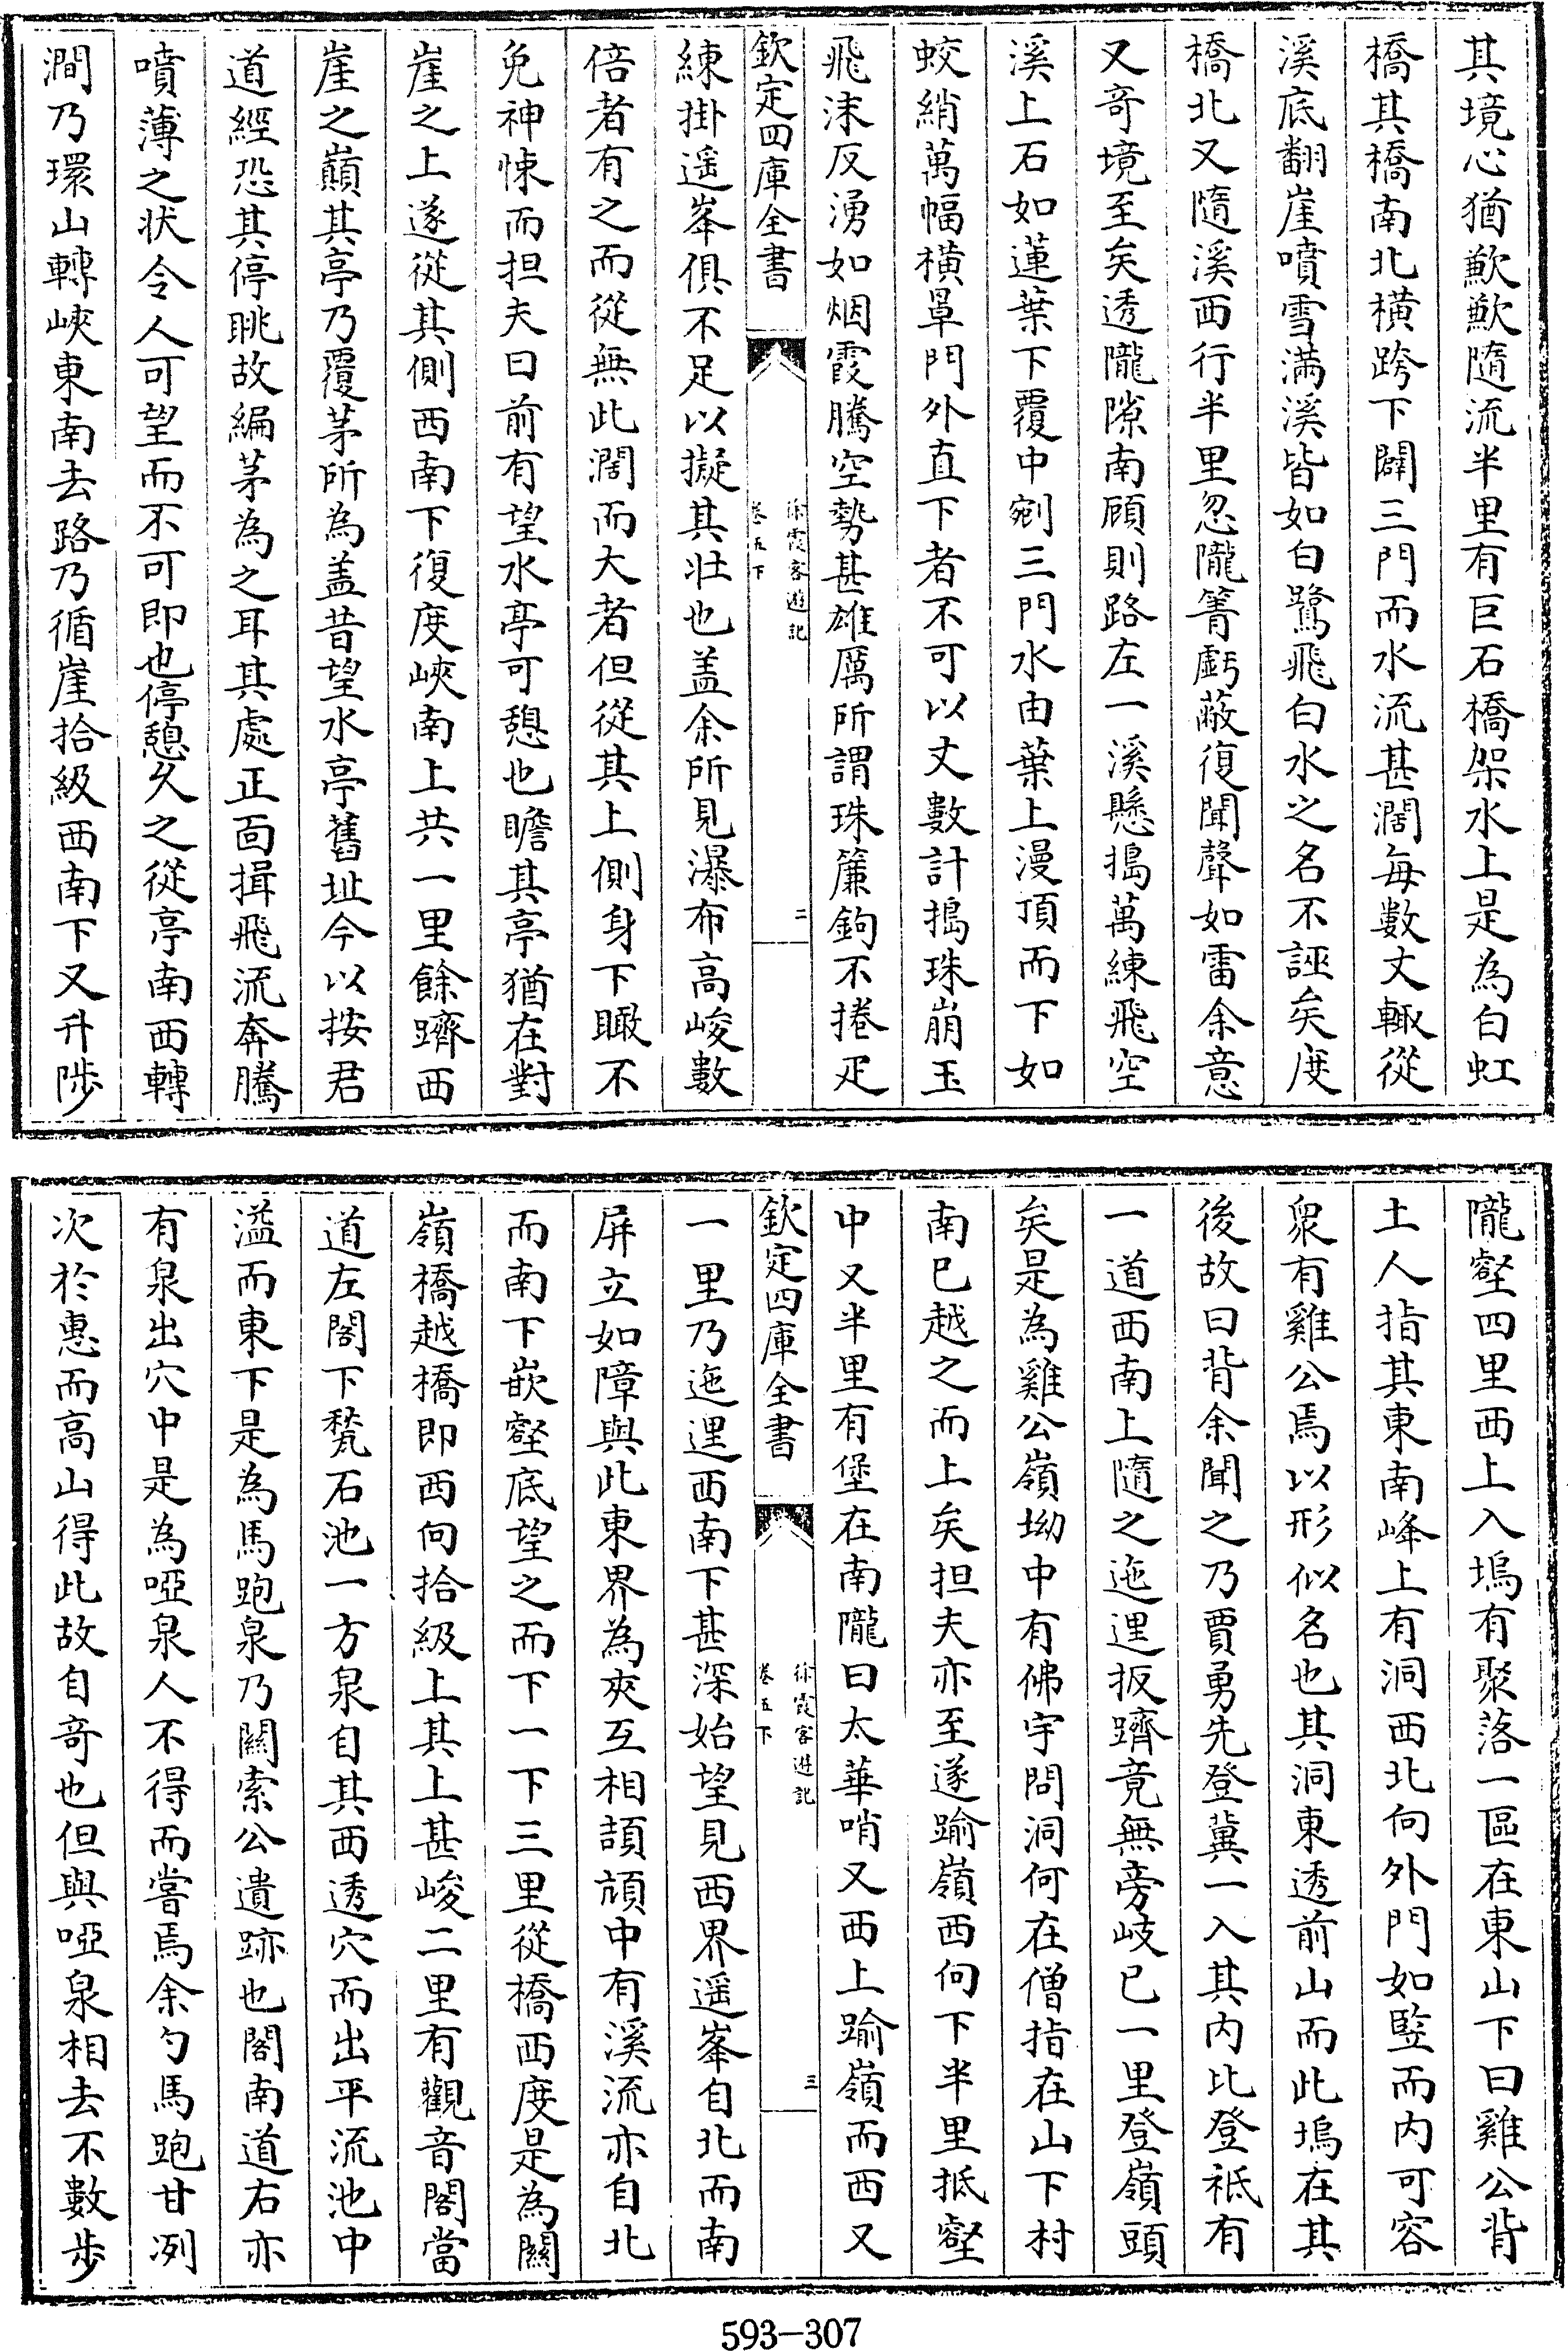 其境心猶歉歉隨流半里有巨石橋架水上是為白虹
橋其橋南北橫跨下闢三門而水流甚濶每數丈輙從
溪底翻崖噴雪滿溪皆如白鷺飛白水之名不誣矣度
橋北又隨溪西行半里忽隴箐虧蔽復聞聲如雷余意
又奇境至矣透隴隙南顧則路左一溪懸搗萬練飛空
溪上石如蓮葉下覆中剜三門水由葉上漫頂而下如
蛟綃萬幅橫罩門外直下者不可以丈數計搗珠崩玉
飛沫反湧如烟霞騰空勢甚雄厲所謂珠簾鉤不捲疋
欽定四庫全書
徐霞客遊記
卷五下
二
練掛遥峯俱不足以擬其壯也盖余所見瀑布高峻數
倍者有之而從無此濶而大者但從其上側身下瞰不
免神悚而担夫曰前有望水亭可憩也瞻其亭猶在對
崖之上遂從其側西南下復度峽南上共一里餘躋西
崖之巔其亭乃覆茅所為盖昔望水亭舊址今以按君
道經恐其停眺故編茅為之耳其處正面揖飛流奔騰
噴薄之狀令人可望而不可即也停憩久之從亭南西轉
澗乃環山轉峽東南去路乃循崖拾級西南下又升陟
隴壑四里西上入塢有聚落一區在東山下曰雞公背
土人指其東南峰上有洞西北向外門如竪而内可容
衆有雞公焉以形似名也其洞東透前山而此塢在其
後故曰背余聞之乃賈勇先登冀一入其内比登祗有
一道西南上隨之迤逗扳躋竟無旁岐已一里登嶺頭
矣是為雞公嶺坳中有佛宇問洞何在僧指在山下村
南已越之而上矣担夫亦至遂踰嶺西向下半里抵壑
中又半里有堡在南隴曰太華哨又西上踰嶺而西又
欽定四庫全書
徐霞客遊記
卷五下
三
一里乃迤逗西南下甚深始望見西界遥峯自北而南
屏立如障與此東界為夾互相頡頏中有溪流亦自北
而南下嵌壑底望之而下一下三里從橋西度是為關
嶺橋越橋即西向拾級上其上甚峻二里有觀音閣當
道左閣下甃石池一方泉自其西透穴而出平流池中
溢而東下是為馬跑泉乃關索公遺跡也閣南道右亦
有泉出穴中是為啞泉人不得而嘗焉余勺馬跑甘冽
次於惠而高山得此故自奇也但與啞泉相去不數步
593-307